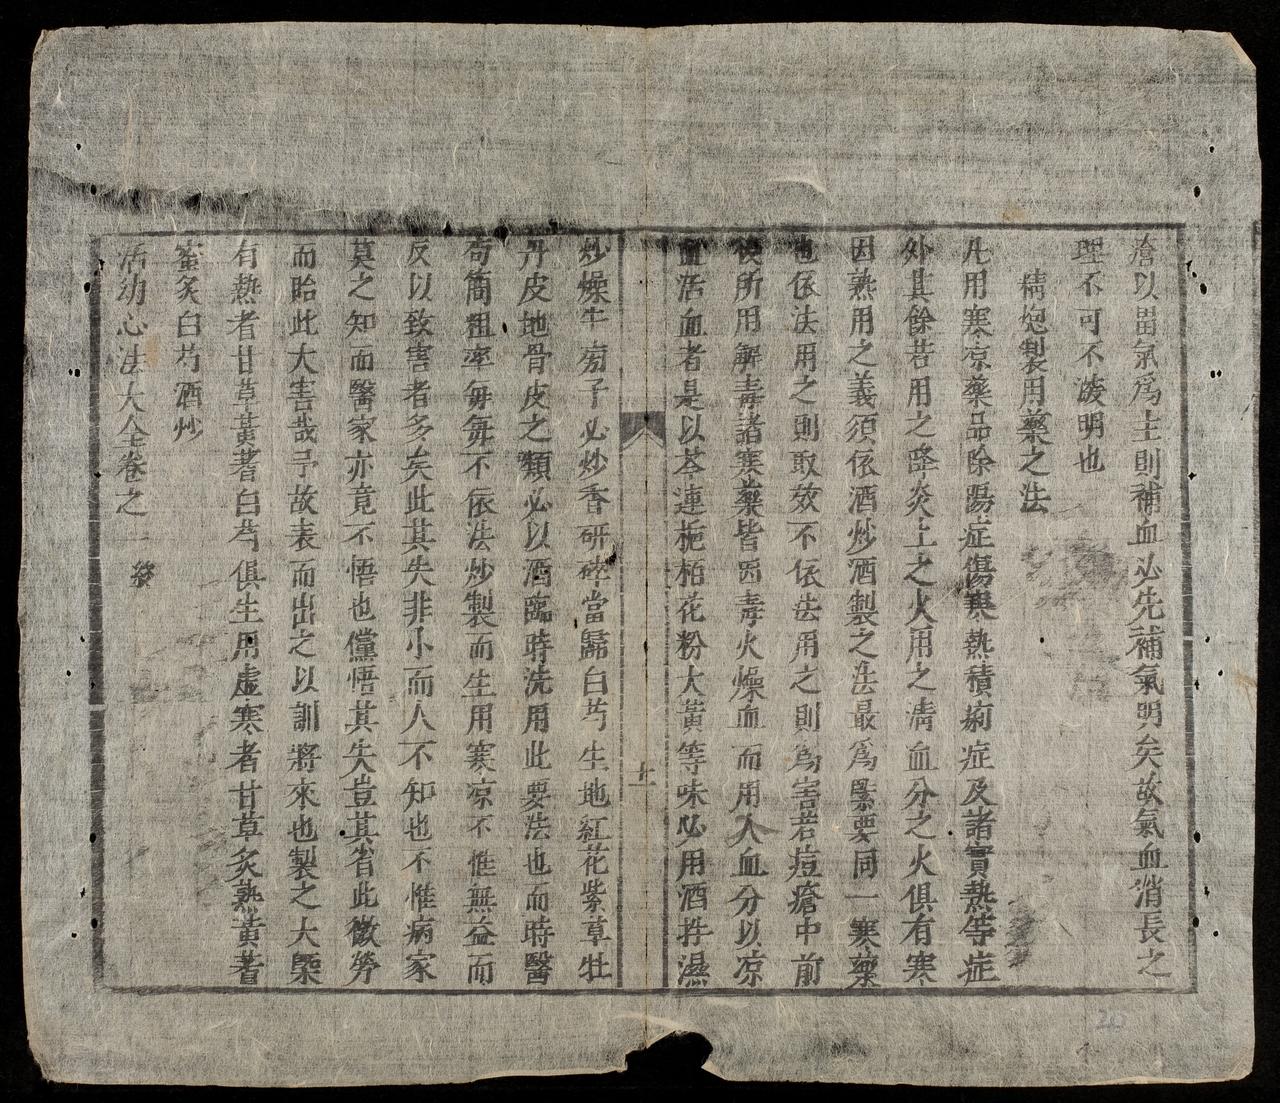 瘡以畱氣爲主則補血必先補氣明矣故氣血消長之
理不可不濬明也
精炮製用藥之法
凡用寒凉藥品除陽症傷寒熱積痢症及諸實熱等症
外其餘若用之降炎上之火用之淸血分之火俱有寒
因熟用之義須依酒炒酒製之法最爲緊要同一寒藥
也依法用之則取效不依法用之則爲害若痘瘡中前
後所用解毒諸寒藥皆因毒火燥血而用入血分以凉
血活血者是以芩連梔柏花粉大黃等味必用酒拌濕
炒燥牛蒡子必炒香硏碎當歸白芍生地紅花紫草牡
丹皮地骨皮之類必以酒臨時洗用此要法也而時醫
苟簡粗率每每不依法炒製而生用寒凉不惟無益而
反以致害者多矣此其失非小而人不知也不惟病家
莫之知而醫家亦竟不悟也儻悟其失豈其省此微勞
而貽此大害哉予故表而出之以訓將來也製之大槩
有熱者甘草黃蓍白芍俱生用虛寒者甘草炙熟黃蓍
蜜炙白芍酒炒
活幼心法大全卷之一 終
上